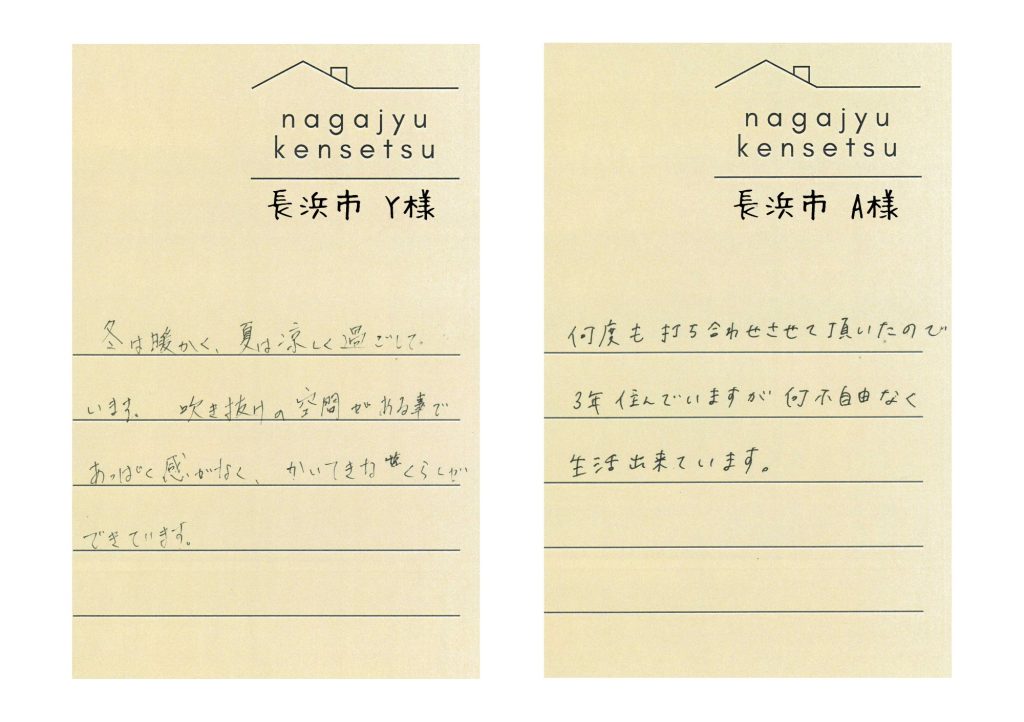 nagajyu
kensetsu
長浜市 Y様
冬は暖かく、夏は涼しく過ごして
います。 吹き抜けの空間がある事で
あっぱく感がなく、 かいてきな くらしが
できています。
nagajyu
kensetsu
長浜市 A様
何度も打ち合わせさせて頂いたので
3年住んでいますが何不自由なく
生活出来ています。